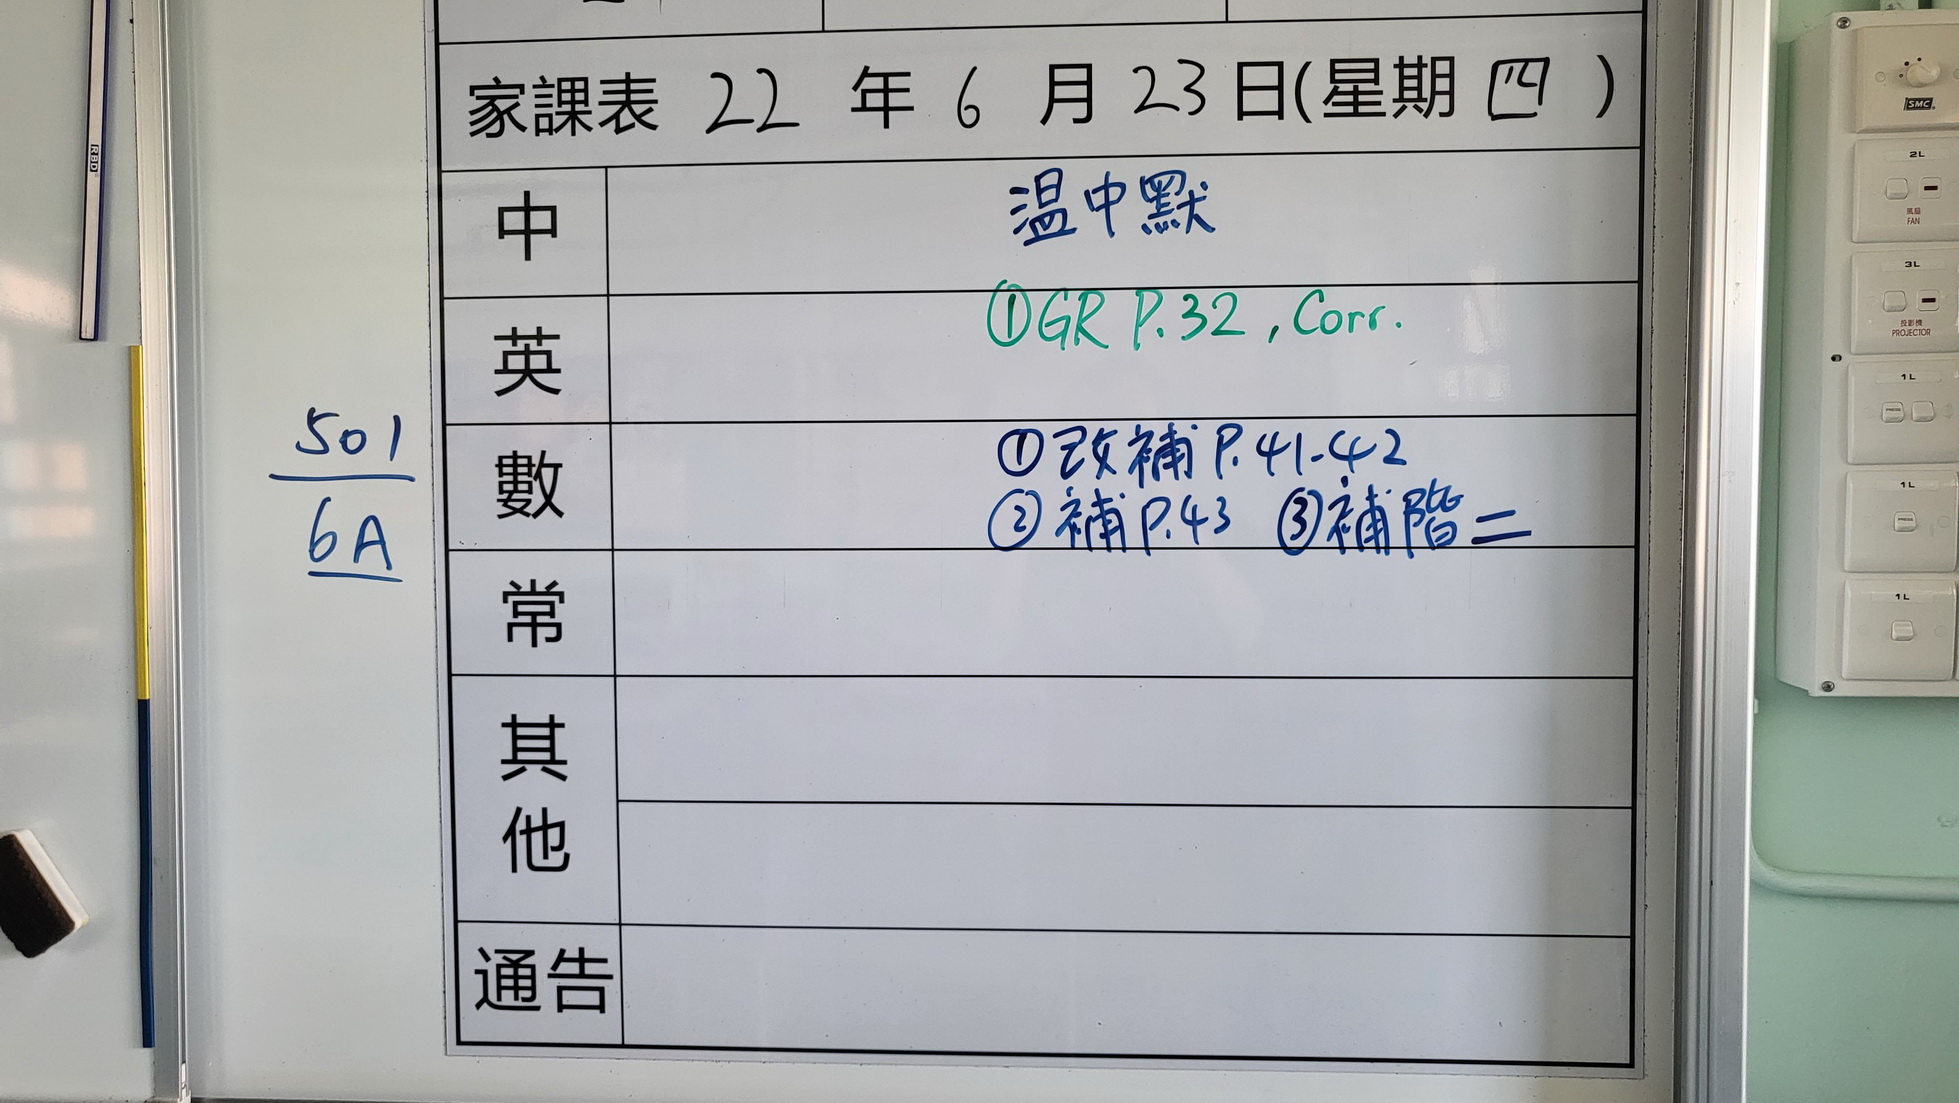 家課表 22 年 6 月 23 日(星期 四 )
中 温中默
英 ①GR P.32 , Corr.
數 ①改補 P.41-42
②補 P.43 ③補階二
常
其他
通告
501
6A
RBD
SMC
2L
風扇
FAN
3L
投影機
PROJECTOR
1L
PRESS
1L
PRESS
1L